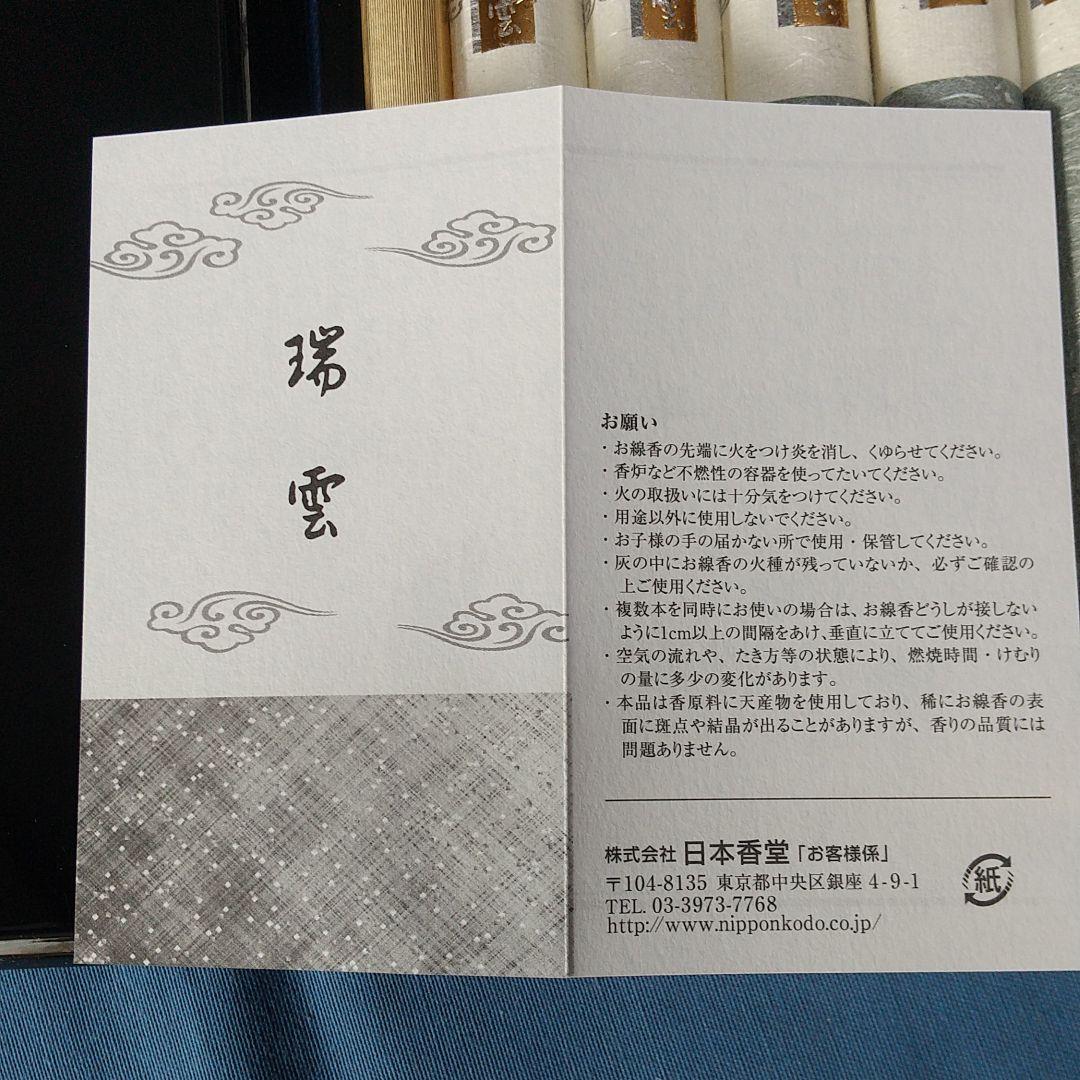 雲
雲
瑞
雲
お願い
・お線香の先端に火をつけ炎を消し、くゆらせてください。
・香炉など不燃性の容器を使ってたいてください。
・火の取扱いには十分気をつけてください。
・用途以外に使用しないでください。
・お子様の手の届かない所で使用・保管してください。
・灰の中にお線香の火種が残っていないか、必ずご確認の
上ご使用ください。
・複数本を同時にお使いの場合は、お線香どうしが接しない
ように1cm以上の間隔をあけ、垂直に立ててご使用ください。
・空気の流れや、たき方等の状態により、燃焼時間・けむり
の量に多少の変化があります。
・本品は香原料に天産物を使用しており、稀にお線香の表
面に斑点や結晶が出ることがありますが、香りの品質には
問題ありません。
株式会社 日本香堂「お客様係」
〒104-8135 東京都中央区銀座 4-9-1
TEL. 03-3973-7768
http://www.nipponkodo.co.jp/
紙